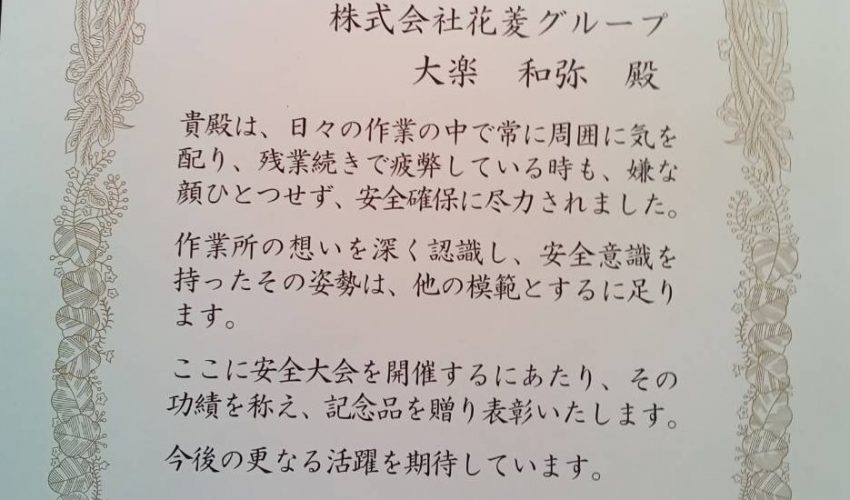 株式会社花菱グループ
大楽　和弥　殿
貴殿は、日々の作業の中で常に周囲に気を
配り、残業続きで疲弊している時も、嫌な
顔ひとつせず、安全確保に尽力されました。
作業所の想いを深く認識し、安全意識を
持ったその姿勢は、他の模範とするに足り
ます。
ここに安全大会を開催するにあたり、その
功績を称え、記念品を贈り表彰いたします。
今後の更なる活躍を期待しています。